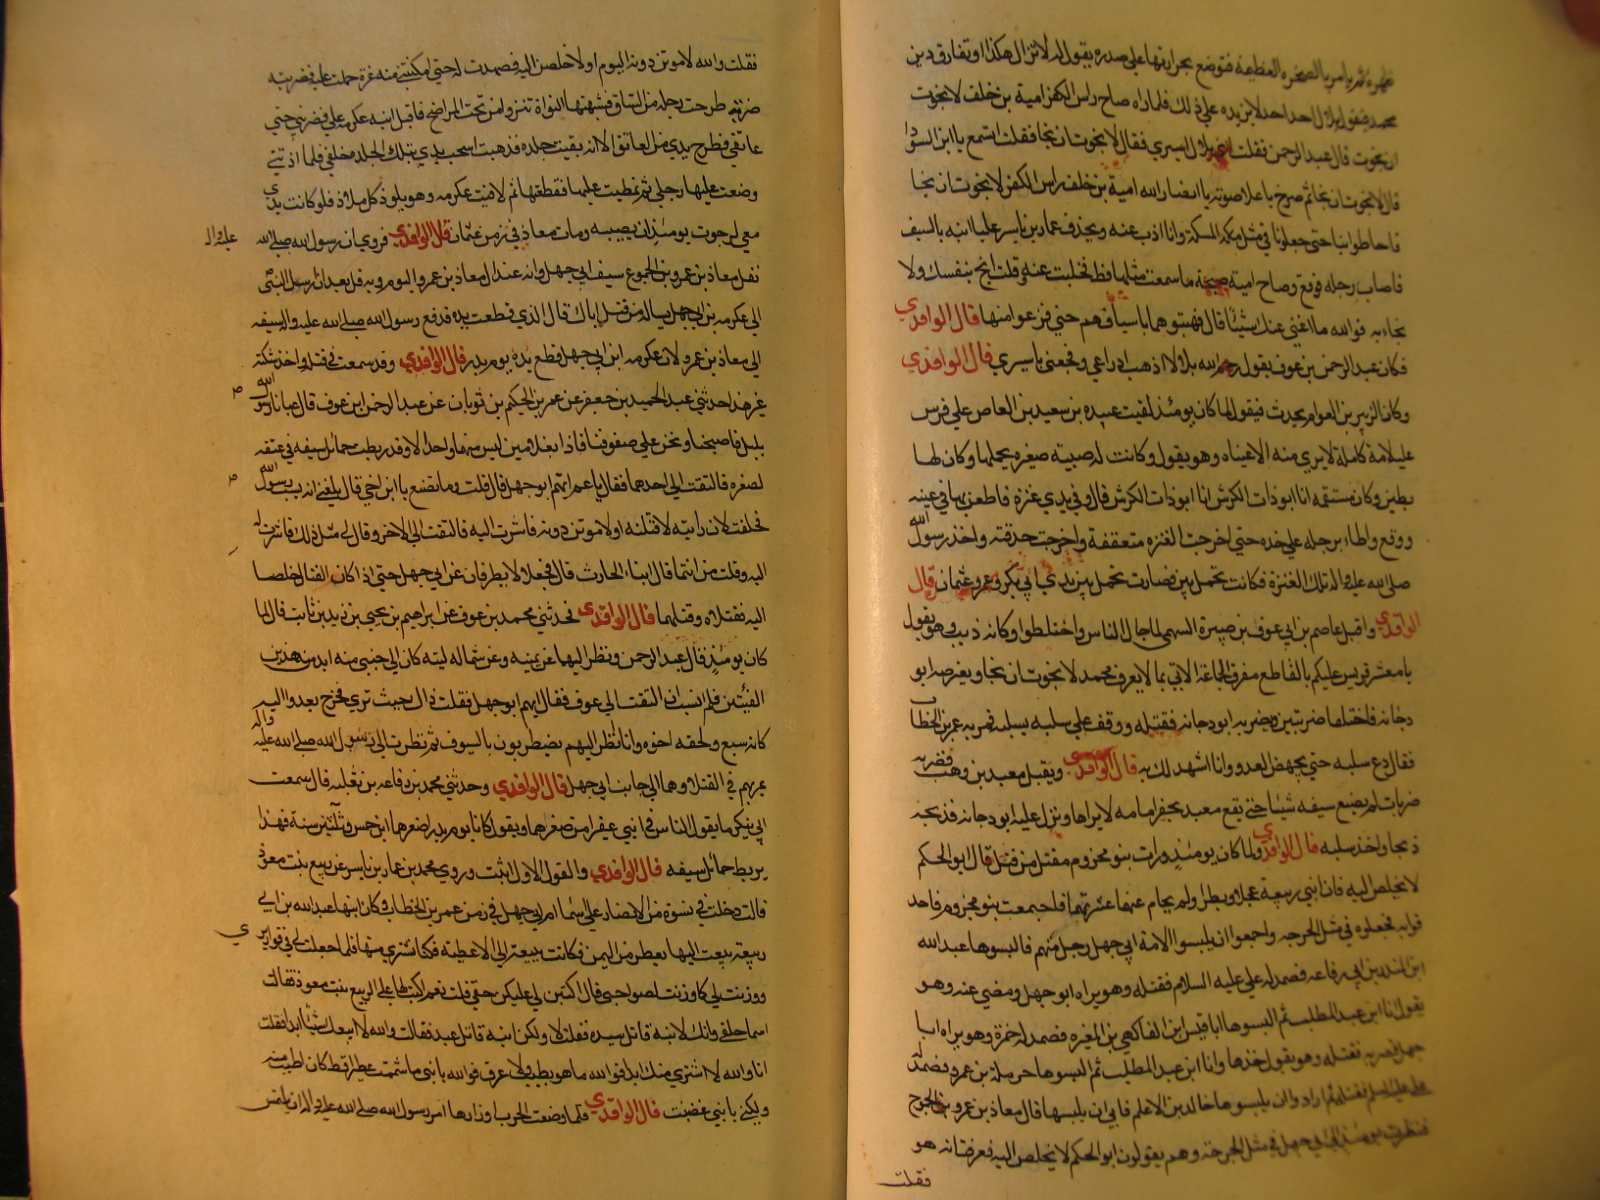 ظهره ثم يامر بالصخره العظيمة فتوضع بحرارتها على صدره يقول له لا تزال هكذا او تفارق دين
محمد فيقول بلال احد احد لا يزيده على ذلك فلما راه صاح راس الكفر امية بن خلف لا نجوت
ان نجوت قال عبد الرحمن فقلت اى بلال اسيري فقال لا نجوت ان نجا فقلت استمع يا ابن السودا
قال لا نجوت ان نجا ثم صرخ با علا صوته يا انصار الله امية بن خلف راس الكفر لا نجوت ان نجا
فاحاطوا بنا حتى جعلونا في مثل مكة المسكة وانا اذب عنه ويحذف عمار بن ياسر عليا ابنه بالسيف
فاصاب رجله فوقع وصاح امية صيحة ما سمعت مثلها قط فخليت عنه وقلت انج بنفسك ولا
نجاء به فوالله ما اغني عنك شيئا قال فهبتوهما باسيافهم حتي فرغوا منها قال الواقدي
فكان عبد الرحمن بن عوف يقول رحم الله بلالا اذهب ادراعي وفجعني باسيري قال الواقدي
وكان الزبير بن العوام يحدث فيقول لما كان يومئذ لقيت عبيده بن سعيد بن العاص علي فرس
عليه لامة كاملة لا يري منه الا عيناه وهو يقول وكانت له صبية صغيره يحملها وكان لها
بطين وكان مستقمه انا ابو ذات الكرش انا ابو ذات الكرش قال وفي يدي عنزة فاطعن بها في عينه
ووقع واطاء برجله علي خده حتي اخرجت العنزه متعقفة واخرجت حدقته واخذ رسول الله
صلى الله عليه واله تلك العنزة فكانت تحمل بين يديه ثم صارت تحمل بين يدي ابي بكر وعمر وعثمان قال
الواقدي واقبل عاصم بن ابي عوف بن صبيرة السهمي لما جال الناس واختلطوا وكانه ذيب وهو يقول
يا معشر قريس عليكم بالقاطع مفرق الجماعة الاتي بما لا يعرف محمد لا نجوت ان نجا ويعترضه ابو
دجانه فاختلفا ضربتين ويضربه ابو دجانه فقتله ووقف علي سلبه يسلبه فمر به عمر بن الخطاب
فقال دع سلبه حتي يجهض العدو وانا اشهد لك به قال الواقدي ويقبل معبد بن وهب فضربه
ضربات لم يصنع سيفه شيئا حتى يقع معبد بحفرة امامه لا يراها ونزل عليه ابو دجانه فذبحه
ذبحا واخذ سلبه قال الواقدي ولما كان يومئذ ورات بنو مخزوم مقتل من قتل قال ابو الحكم
لا يخلص اليه فان ابني ربيعة عجلا وبطرا ولم يحام عنهما عشيرتهما فاجتمعت بنو مخزوم فاحد
قوا به فجعلوه في مثل الحرجه واجمعوا ان يلبسوا لامة ابي جهل رجل منهم فالبسوها عبد الله
ابن المنذر بن ابي رفاعه فصمد له علي عليه السلام فقتله وهو يراه ابو جهل ومضي عنه وهو
يقول انا ابن عبد المطلب ثم البسوها ابا قيس ابن الفاكهي بن المغيره فصمد له حمزة وهو يراه ابا
جهل فضربه فقتله وهو يقول خذها وانا ابن عبد المطلب ثم البسوها حرملة بن عمرو فصمد له
علي عليه السلم فقتله ثم اراد وا ان يلبسوها خالد بن الاعلم فابي ان يلبسها قال معاذ بن عمرو بن الجموح
فنظرت يومئذ الى ابي جهل في مثل الحرجة وهم يقولون ابو الحكم لا يخلص اليه فعرفت انه هو
فقلت
فقلت والله لاموتن دونه اليوم او لاخلصن اليه فصمدت له حتي امكنتني منه غرة حملت عليه فضربته
ضربة طرحت رجله من الساق فشبهتها النواة تنزو من تحت المراضخ فاقبل ابنه عكرمه علي فضربني حتي
عاتقي فطرح يدي من العاتق الا انه بقيت جلده فذهبت اسحب يدي بتلك الجلده خلفي فلما اذتني
وضعت عليها رجلي ثم تمطيت عليها فقطعتها ثم لاقيت عكرمه وهو يلوذ كل ملاذ فلو كانت يدي
معي لرجوت يومئذ ان اصيبه ومات معاذ في زمن عثمان قال الواقدي فروي ان رسول الله صلى الله عليه واله
نفل معاذ بن عمرو بن الجموع سيف ابي جهل وانه عند ال معاذ بن عمرو اليوم وبه فل بعد ان ارسل النبي
الي عكرمه بن ابي جهل يساله من قتل اباك قال الذي قطعت يده فدفع رسول الله صلى الله عليه واله سيفه
الي معاذ بن عمرو لان عكرمه ابن ابي جهل قطع يده يوم بدر قال الواقدي وقد سمعت في قتله واخذ شكته
غير هذا حدثني عبد الحميد بن جعفر عن عمر بن الحكيم بن ثوبان عن عبد الرحمن ابن عوف قال عبانا رسول الله
بليل فاصبحنا ونحن علي صفوفنا فاذا بغلامين ليس منهما واحد الا وقد ربطت حمائل سيفه في عنقه
لصغره فالتفت الي احدهما فقال يا عم ايهم ابو جهل قال قلت وما تصنع يا ابن اخي قال بلغني انه يسب رسول الله
فحلفت لان رايته لاقتلنه او لاموتن دونه فاشرت اليه فالتفت الي الاخر وقال لي مثل ذلك فاشرت له
اليه وقلت من انتما قال ابناء الحارث قال فجعلا لا يطرفان عن ابي جهل حتي اذا كان القتال خلصا
اليه فقتلاه وقتلهما قال الواقدي فحدثني محمد بن عوف عن ابراهيم بن يحيي بن زيد بن ثابت قال لما
كان يومئذ قال عبد الرحمن ونظر اليهما عن يمينه وعن شماله ليته كان الي جنبي منه ابد من هذين
الفيتين فلم انسب ان التفت الي عوف فقال ايهم ابو جهل فقلت ذال حيث تري فخرج يعدو اليه
كانه سبع ولحقه اخوه وانا انظر اليهم يضطربون بالسيوف ثم نظرت الي رسول الله صلى الله عليه واله
يمر بهم في القتلا وهما الي جانب ابي جهل قال الواقدي وحدثني محمد بن رفاعه بن ثعلبه قال سمعت
ابي ينكر ما يقول الناس في ابني عفيرا من صغرهما ويقول كانا يوم بدر اصغرهما ابن خمس وثلثين سنة فهذا
يربط حمائل سيفه قال الواقدي والقول الاول اثبت وروي محمد بن عمار بن ياسر عن ربيع بنت معوذ
قالت دخلت في نسوة من الانصار علي اسما ام ابي جهل في زمن عمر بن الخطاب وكان ابنها عبد الله بن ابي
ربيعة يبعث اليها بعطر من اليمن فكانت تبيعه الي الاعطية فكنا نشتري منها فلما جعلت لي في قواريري
ووزنت لي كما وزنت لصواحبي قال اكتبن لي عليكن حقي قلت نعم اكتب لها على الربيع بنت معوذ فقالت
اسما حلفي وانك لابنة قاتل سيده فقلت لا ولكن ابنة قاتل عبده فقالت والله لا ابيعك شيئا ابدا فقلت
انا والله لا اشتري منك ابدا فوالله ما هو بطيب ولا عرف فوالله يا بني ما شممت عطرا قط كان اطيب منه
ولكني يا بني غضبت قال الواقدي فلما وضعت الحرب اوزارها امر رسول الله صلى الله عليه واله ان يلتمس